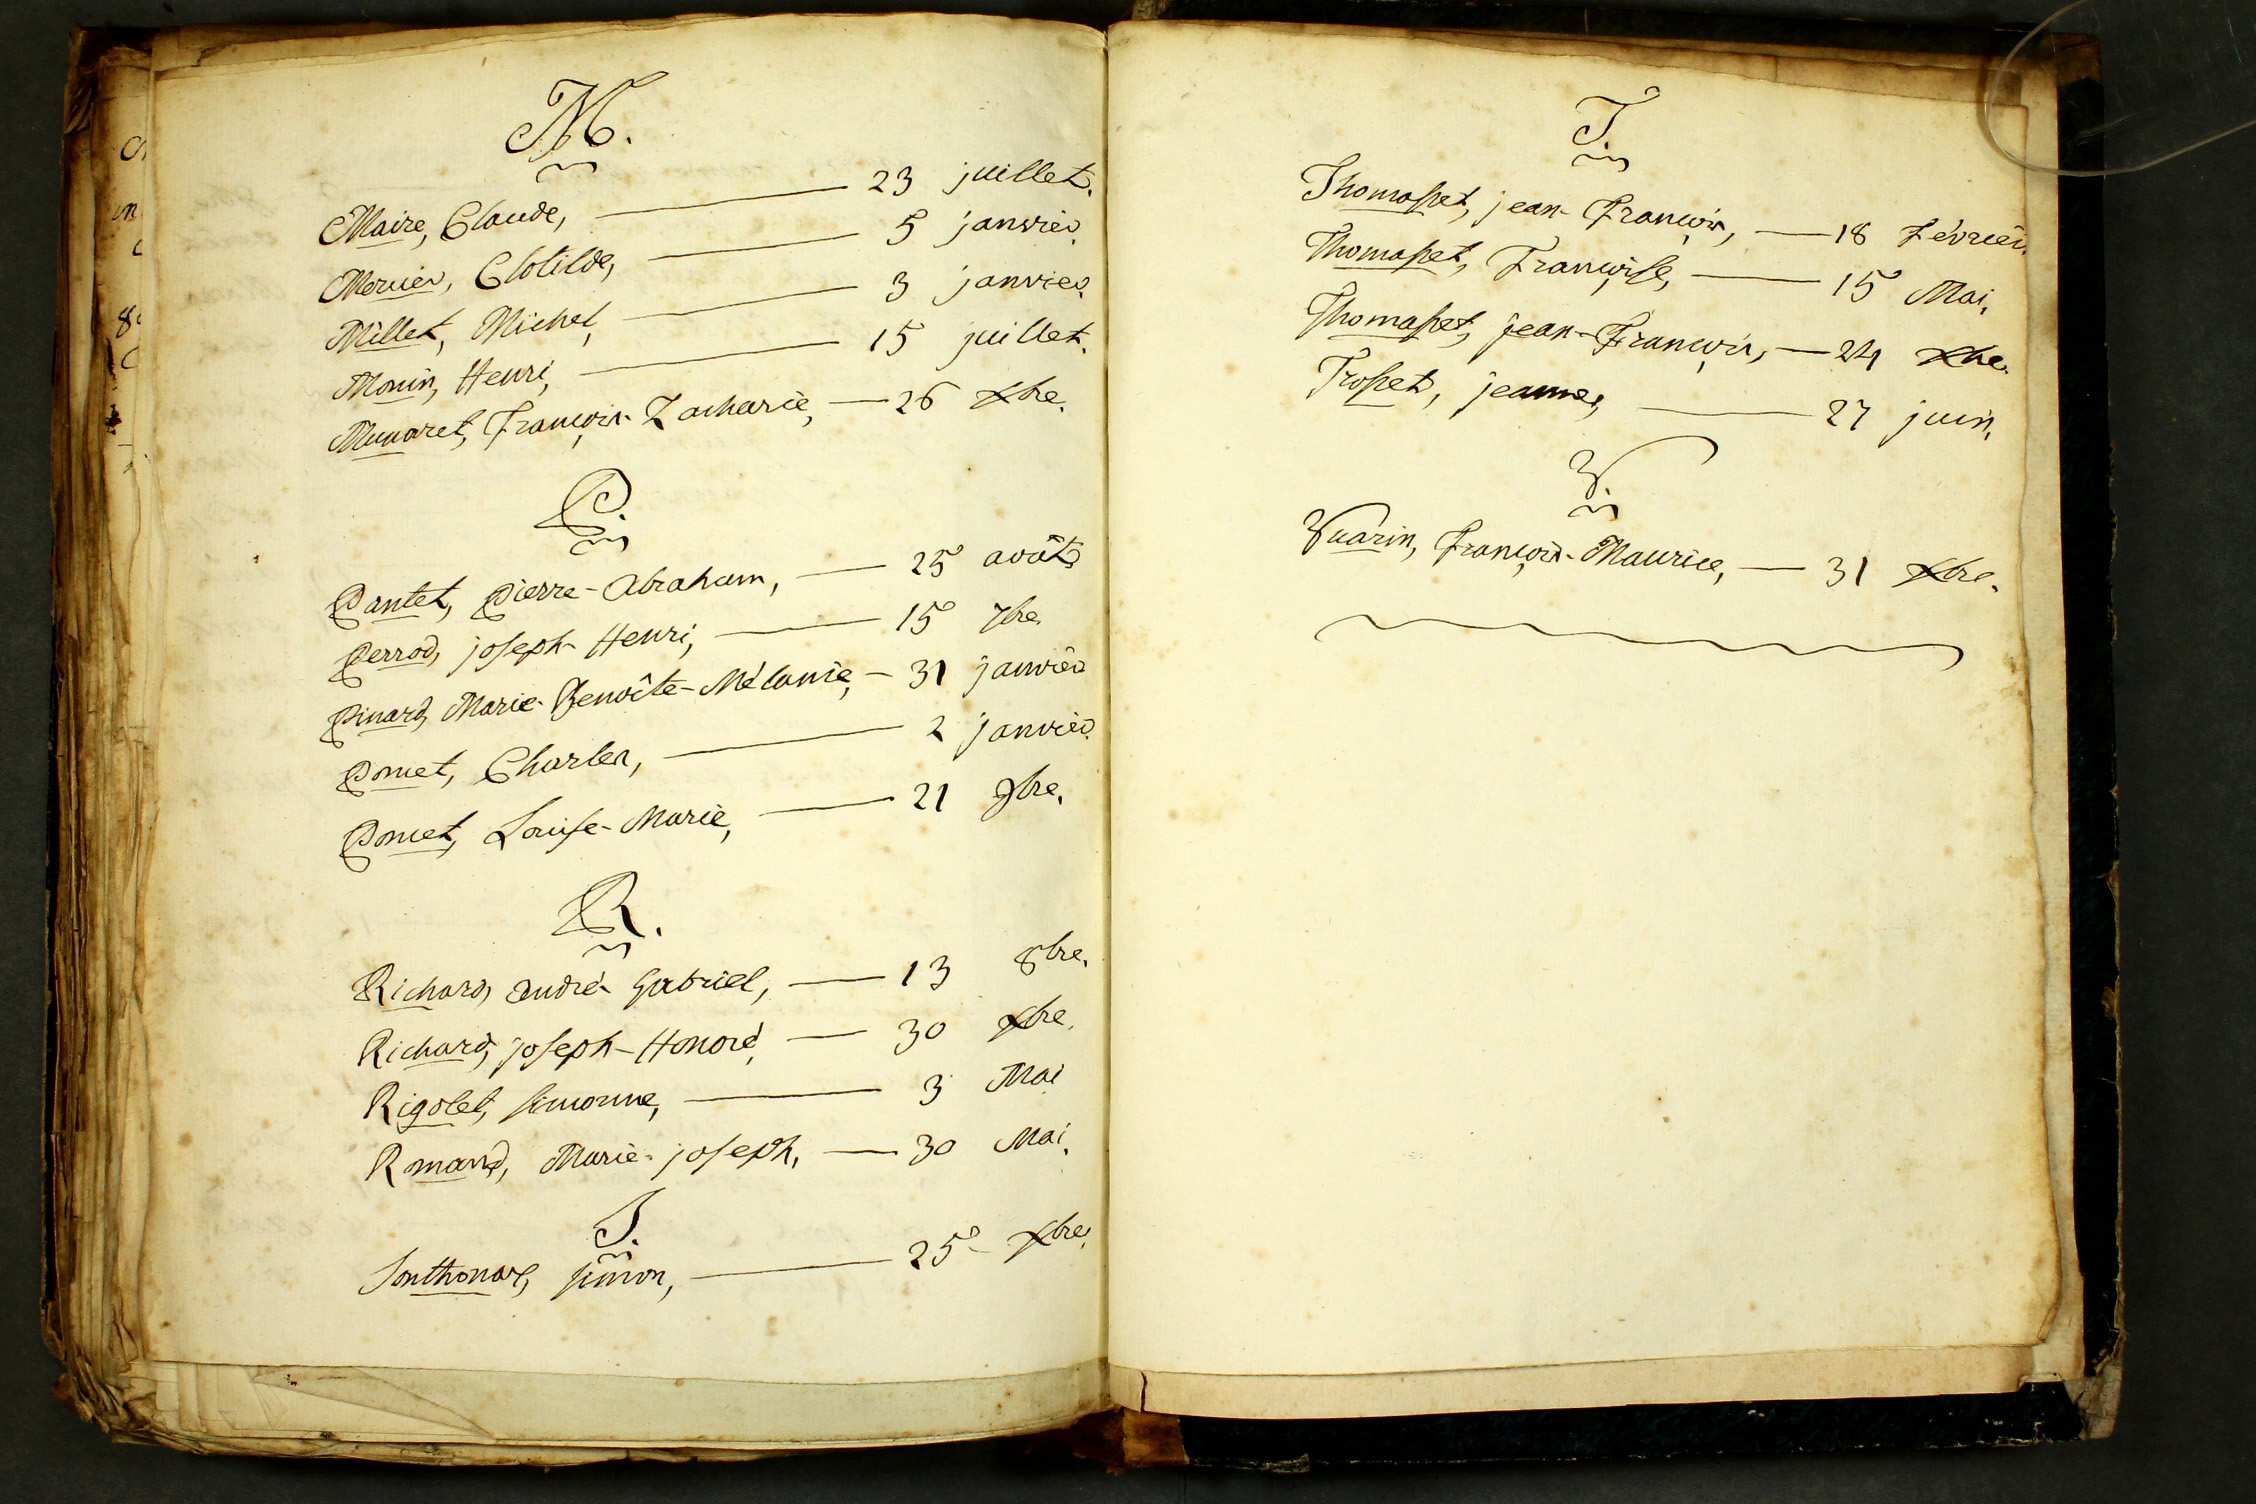 M.
Maire, Claude, — 23 juillet.
Mercier, Clotilde, — 5 janvier.
Millet, Michel, — 3 janvier.
Monin, Henri, — 15 juillet.
Munaret, François-Zacharie, — 26 Xbre.
P.
Pantet, Pierre-Abraham, — 25 août
Perrod, joseph-Henri, — 15 7bre
Pinard, Marie-Benoîte-Mélanie, — 31 janvier
Poncet, Charles, — 2 janvier.
Poncet, Louise-Marie, — 21 9bre.
R.
Richard, andré-Gabriel, — 13 8bre.
Richard, joseph-Honoré, — 30 Xbre.
Rigolet, simonne, — 3 Mai
Romand, Marie-joseph, — 30 Mai.
S.
Sonthonax, simon, — 25 Xbre.
T.
Thomasset, jean-François, — 18 Février.
Thomasset, Françoise, — 15 Mai.
Thomasset, jean-François, — 24 Xbre.
Trosset, jeanne, — 27 juin.
V.
Vuarin, François-Maurice, — 31 Xbre.